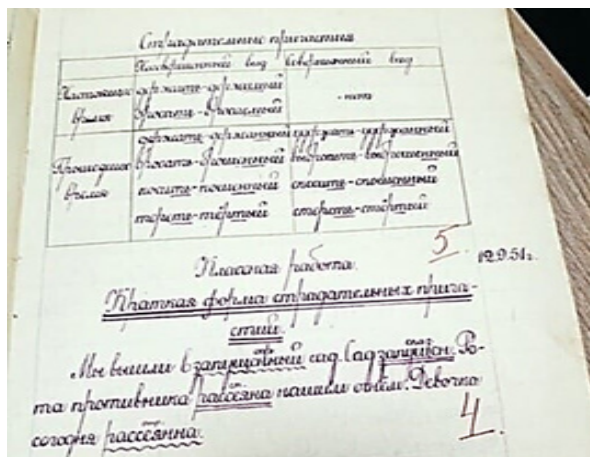 Страдательные причастия
Несовершенный вид Совершенный вид
Настоящее время держать-держимый бросать-бросаемый - нет
Прошедшее время держать-держанный удержать-удержанный
бросать-брошенный выбросить-выброшенный
косить-кошенный скосить-скошенный
тереть-тёртый стереть-стёртый
5
Классная работа. 12.9.51г.
Краткая форма страдательных прича-
стий.
Мы вышли в запущенный сад. Сад запущен. Ро-
та противника рассеяна нашим огнём. Девочка
сегодня рассеянна.
4